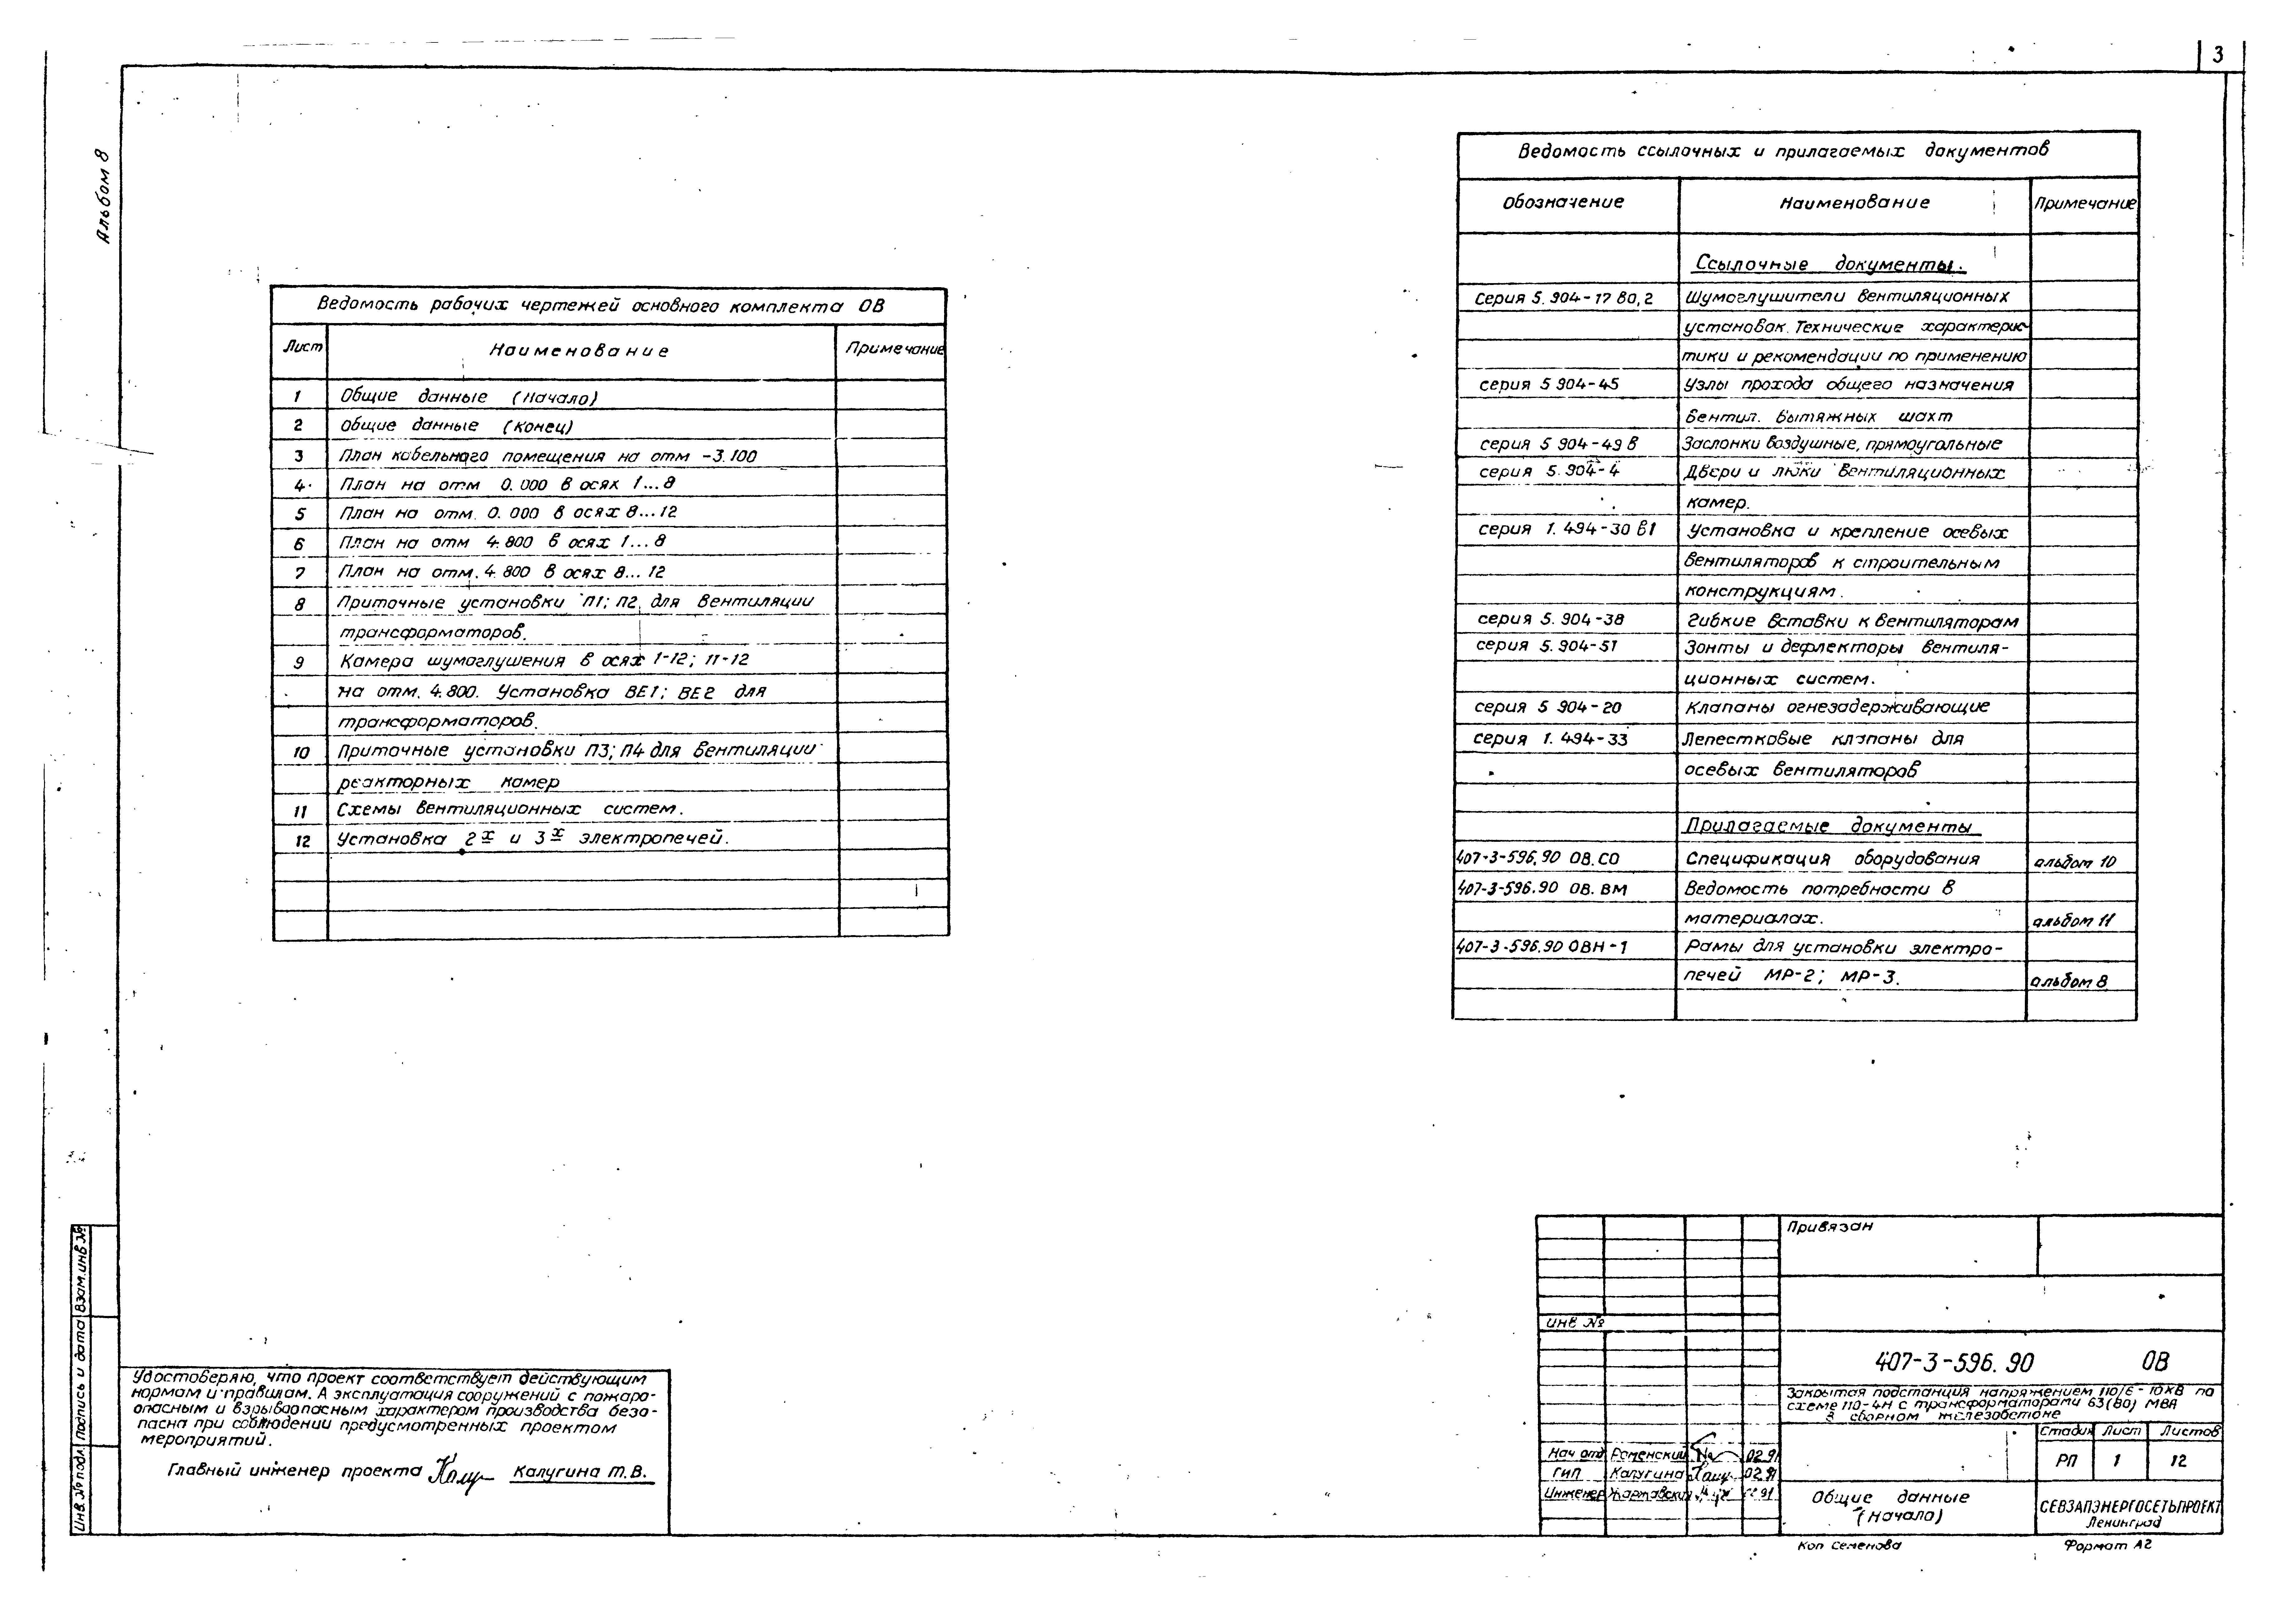 3
Альбом 8
Ведомость рабочих чертежей основного комплекта ОВ
Лист Наименование Примечание
1 Общие данные (начало)
2 Общие данные (конец)
3 План кабельного помещения на отм -3.100
4 План на отм 0.000 в осях 1...8
5 План на отм. 0.000 в осях 8...12
6 План на отм 4.800 в осях 1...8
7 План на отм. 4.800 в осях 8...12
8 Приточные установки П1; П2 для вентиляции
трансформаторов.
9 Камера шумоглушения в осях 1-12; 11-12
на отм. 4.800. Установка ВЕ1; ВЕ2 для
трансформаторов.
10 Приточные установки П3; П4 для вентиляции
реакторных камер
11 Схемы вентиляционных систем.
12 Установка 2х и 3х электропечей.
Ведомость ссылочных и прилагаемых документов
Обозначение Наименование Примечание
Ссылочные документы.
Серия 5.904-17 в0,2 Шумоглушители вентиляционных
установок. Технические характерис-
тики и рекомендации по применению
серия 5 904-45 Узлы прохода общего назначения
вентил. вытяжных шахт
серия 5 904-49 в Заслонки воздушные, прямоугольные
серия 5.904-4 Двери и люки вентиляционных
камер.
серия 1.494-30 в1 Установка и крепление осевых
вентиляторов к строительным
конструкциям.
серия 5.904-38 Гибкие вставки к вентиляторам
серия 5.904-51 Зонты и дефлекторы вентиля-
ционных систем.
серия 5 904-20 Клапаны огнезадерживающие
серия 1.494-33 Лепестковые клапаны для
осевых вентиляторов
Прилагаемые документы
407-3-596.90 ОВ.СО Спецификация оборудования альбом 10
407-3-596.90 ОВ.ВМ Ведомость потребности в
материалах. альбом 11
407-3-596.90 ОВН-1 Рамы для установки электро-
печей МР-2; МР-3. альбом 8
Удостоверяю, что проект соответствует действующим
нормам и правилам. А эксплуатация сооружений с пожаро-
опасным и взрывоопасным характером производства безо-
пасна при соблюдении предусмотренных проектом
мероприятий.
Главный инженер проекта Калугина Т.В.
Инв. № подл. Подпись и дата Взам.инв №
Привязан
инв №
407-3-596.90 ОВ
Закрытая подстанция напряжением 110/6-10кв по
схеме 110-4Н с трансформаторами 63(80) МВА
в сборном железобетоне
Стадия Лист Листов
РП 1 12
Нач отд Роменский 02.91
ГИП Калугина 02.91
Инженер
Общие данные
(начало)
СЕВЗАПЭНЕРГОСЕТЬПРОЕКТ
Ленинград
Коп Семенова Формат А2